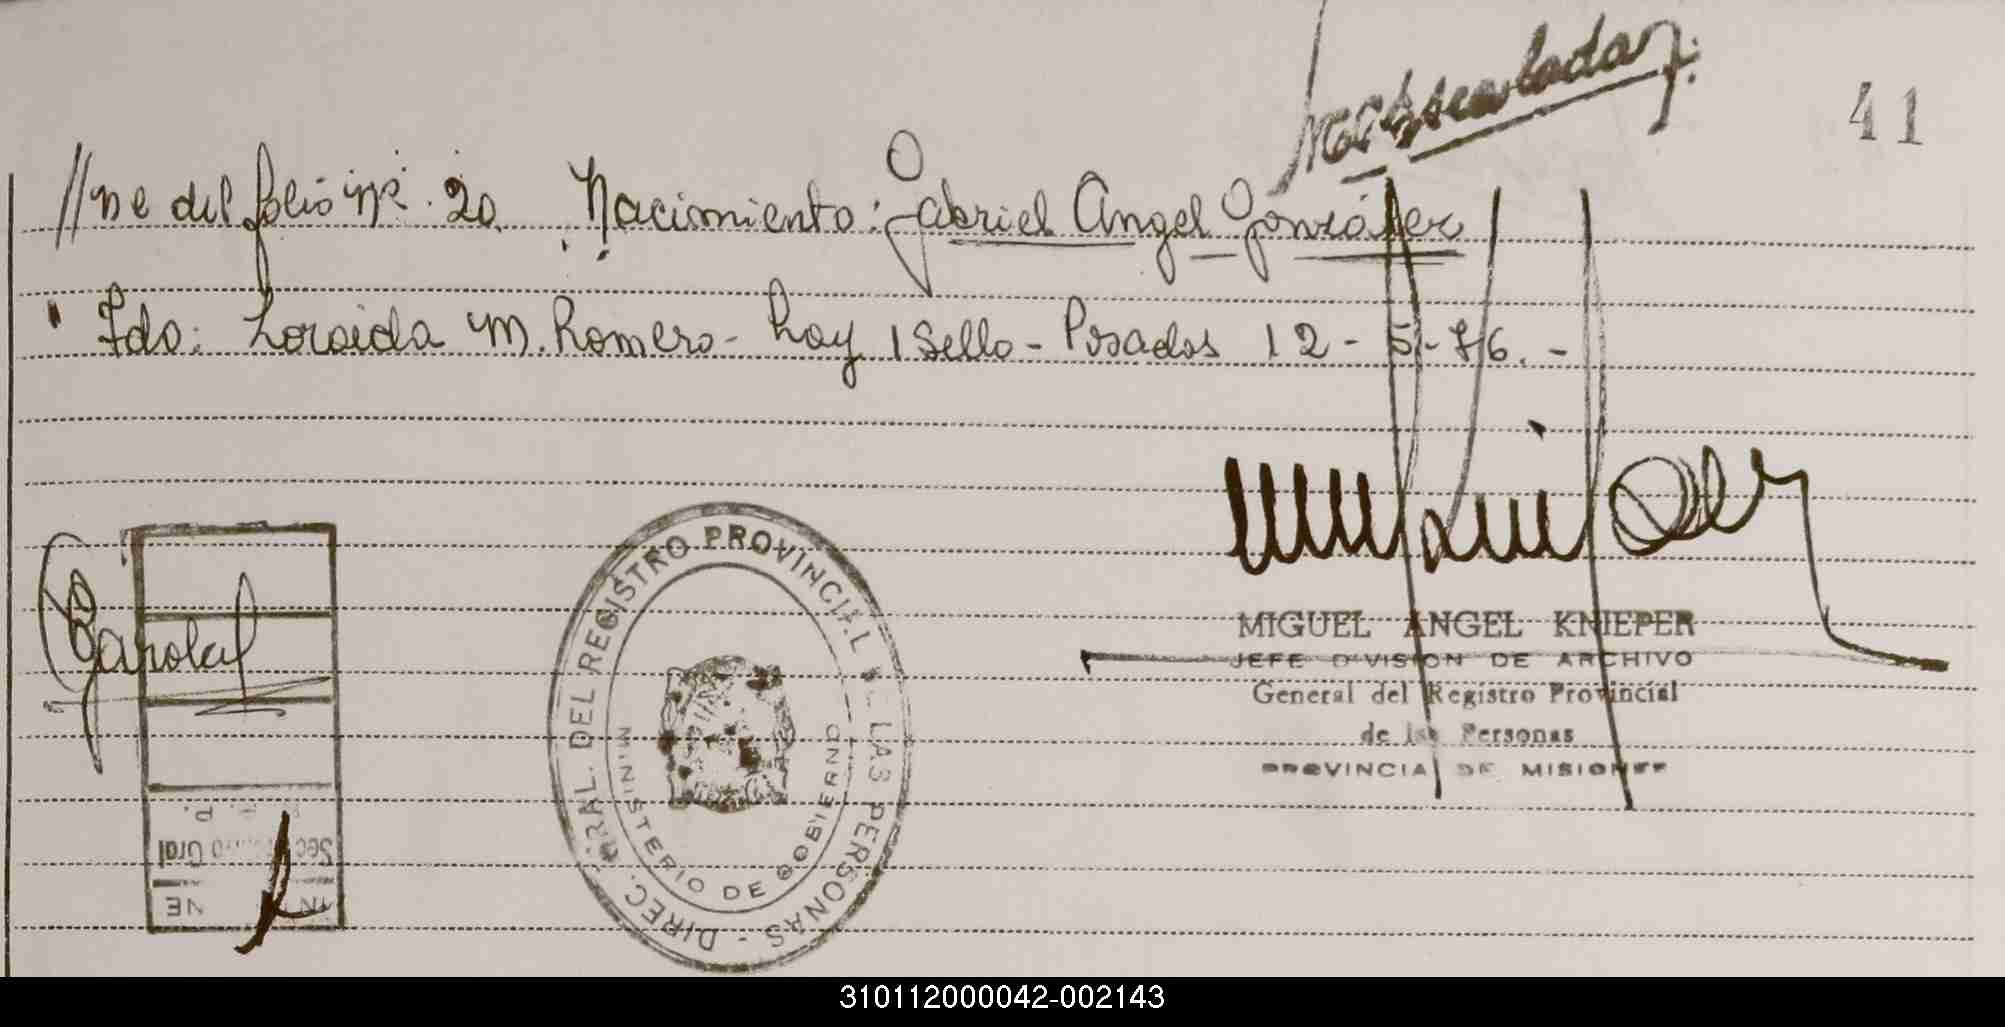 41
//ne del folio nº. 20. Nacimiento: Gabriel Angel González
Fdo: Loraida M. Romero - hay 1 Sello - Posadas 12 - 5 - 76. -
DIREC. GRAL. DEL REGISTRO PROVINCIAL DE LAS PERSONAS -
MINISTERIO DE GOBIERNO
MIGUEL ANGEL KNIEPER
JEFE DIVISION DE ARCHIVO
General del Registro Provincial
de las Personas
PROVINCIA DE MISIONES
310112000042-002143